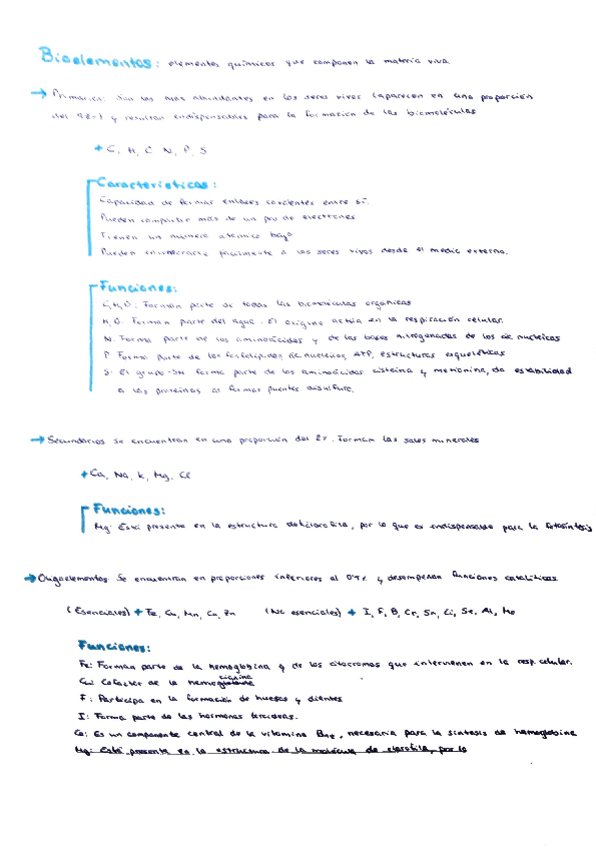 Bioelementos: elementos químicos que componen la materia viva.
→ Primarios: Son los más abundantes en los seres vivos (aparecen en una proporción
del 98%) y resultan indispensables para la formación de las biomoléculas
+ C, H, O N, P, S
Características:
Capacidad de formar enlaces covalentes entre sí.
Pueden compartir más de un par de electrones
Tienen un número atómico bajo
Pueden incorporarse fácilmente a los seres vivos desde el medio externo.
Funciones:
C, H, O: Forman parte de todas las biomoléculas orgánicas
H, O: Forman parte del agua. El oxígeno actúa en la respiración celular.
N: Forma parte de los aminoácidos y de las bases nitrogenadas de los ác nucleicos
P: Forma parte de los fosfolípidos, ác nucleicos, ATP, estructuras esqueléticas
S: El grupo -SH forma parte de los aminoácidos cisteína y metionina, da estabilidad
a las proteínas al formar puentes disulfuro.
→ Secundarios se encuentran en una proporción del 2%. Forman las sales minerales
+ Ca, Na, K, Mg, Cl
Funciones:
Mg: Está presente en la estructura de la clorofila, por lo que es indispensable para la fotosíntesis
→ Oligoelementos Se encuentran en proporciones inferiores al 0'1% y desempeñan funciones catalíticas
(Esenciales) + Fe, Cu, Mn, Co, Zn (No esenciales) + I, F, B, Cr, Sn, Li, Se, Al, Mo
Funciones:
Fe: Forman parte de la hemoglobina y de los citocromos que intervienen en la resp. celular.
Cu: Cofactor de la hemocianina
F: Participa en la formación de huesos y dientes
I: Forma parte de las hormonas tiroideas.
Co: Es un componente central de la vitamina B12, necesaria para la síntesis de hemoglobina
Mg: Está presente en la estructura de la molécula de clorofila, por lo